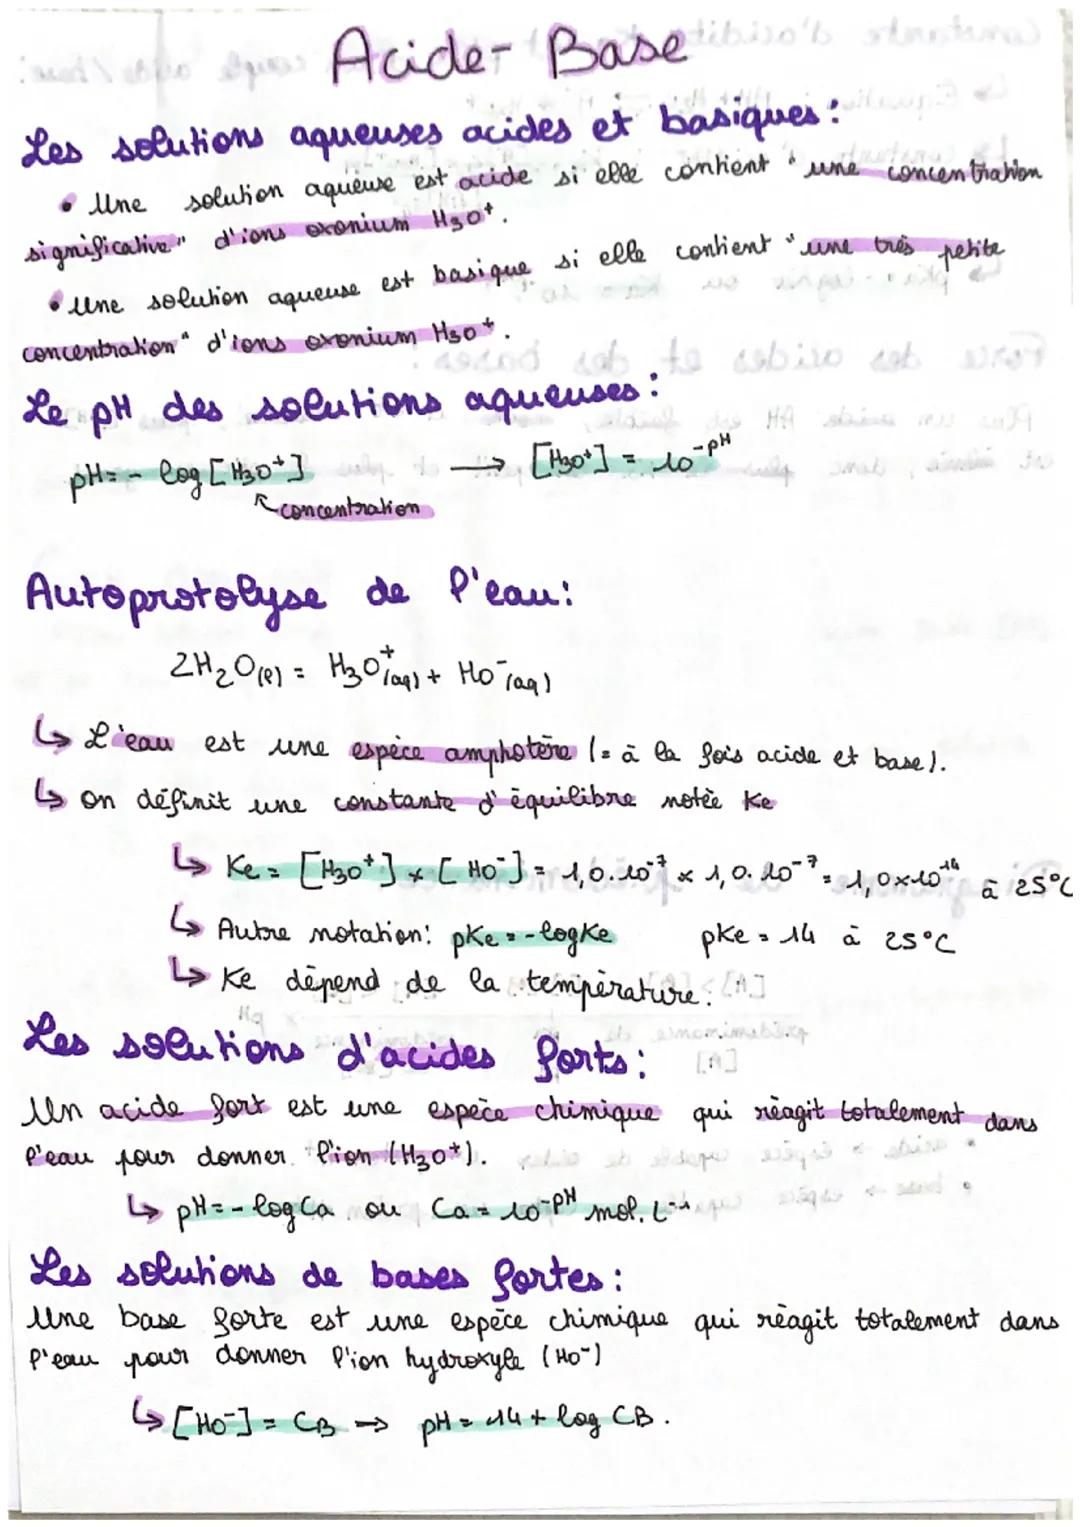 Acide-Base
Les solutions aqueuses acides et basiques :
• Une solution aqueuse est acide si elle contient "une concentration
significative" d'ions oxonium H3O+.
• Une solution aqueuse est basique si elle contient "une très petite
concentration" d'ions oxonium H3O+.
Le pH des solutions aqueuses :
pH = - log [H3O+] → [H3O+] = 10^-pH
concentration
Autoprotolyse de l'eau :
2H2O(l) = H3O+(aq) + HO-(aq)
↳ L'eau est une espèce amphotère (= à la fois acide et base).
↳ on définit une constante d'équilibre notée Ke
↳ Ke = [H3O+] x [HO-] = 1,0.10^-7 x 1,0.10^-7 = 1,0x10^-14 à 25°C
↳ Autre notation: pKe = -logKe pKe = 14 à 25°C
↳ Ke dépend de la température.
Les solutions d'acides forts :
Un acide fort est une espèce chimique qui réagit totalement dans
l'eau pour donner l'ion (H3O+).
↳ pH = - log Ca ou Ca = 10^-pH mol.L^-1
Les solutions de bases fortes :
Une base forte est une espèce chimique qui réagit totalement dans
l'eau pour donner l'ion hydroxyle (HO-)
↳ [HO-] = CB → pH = 14 + log CB.